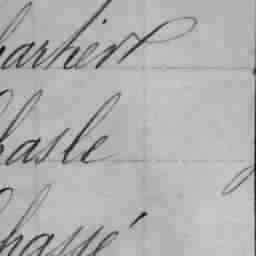 hartier
hasle
hassé